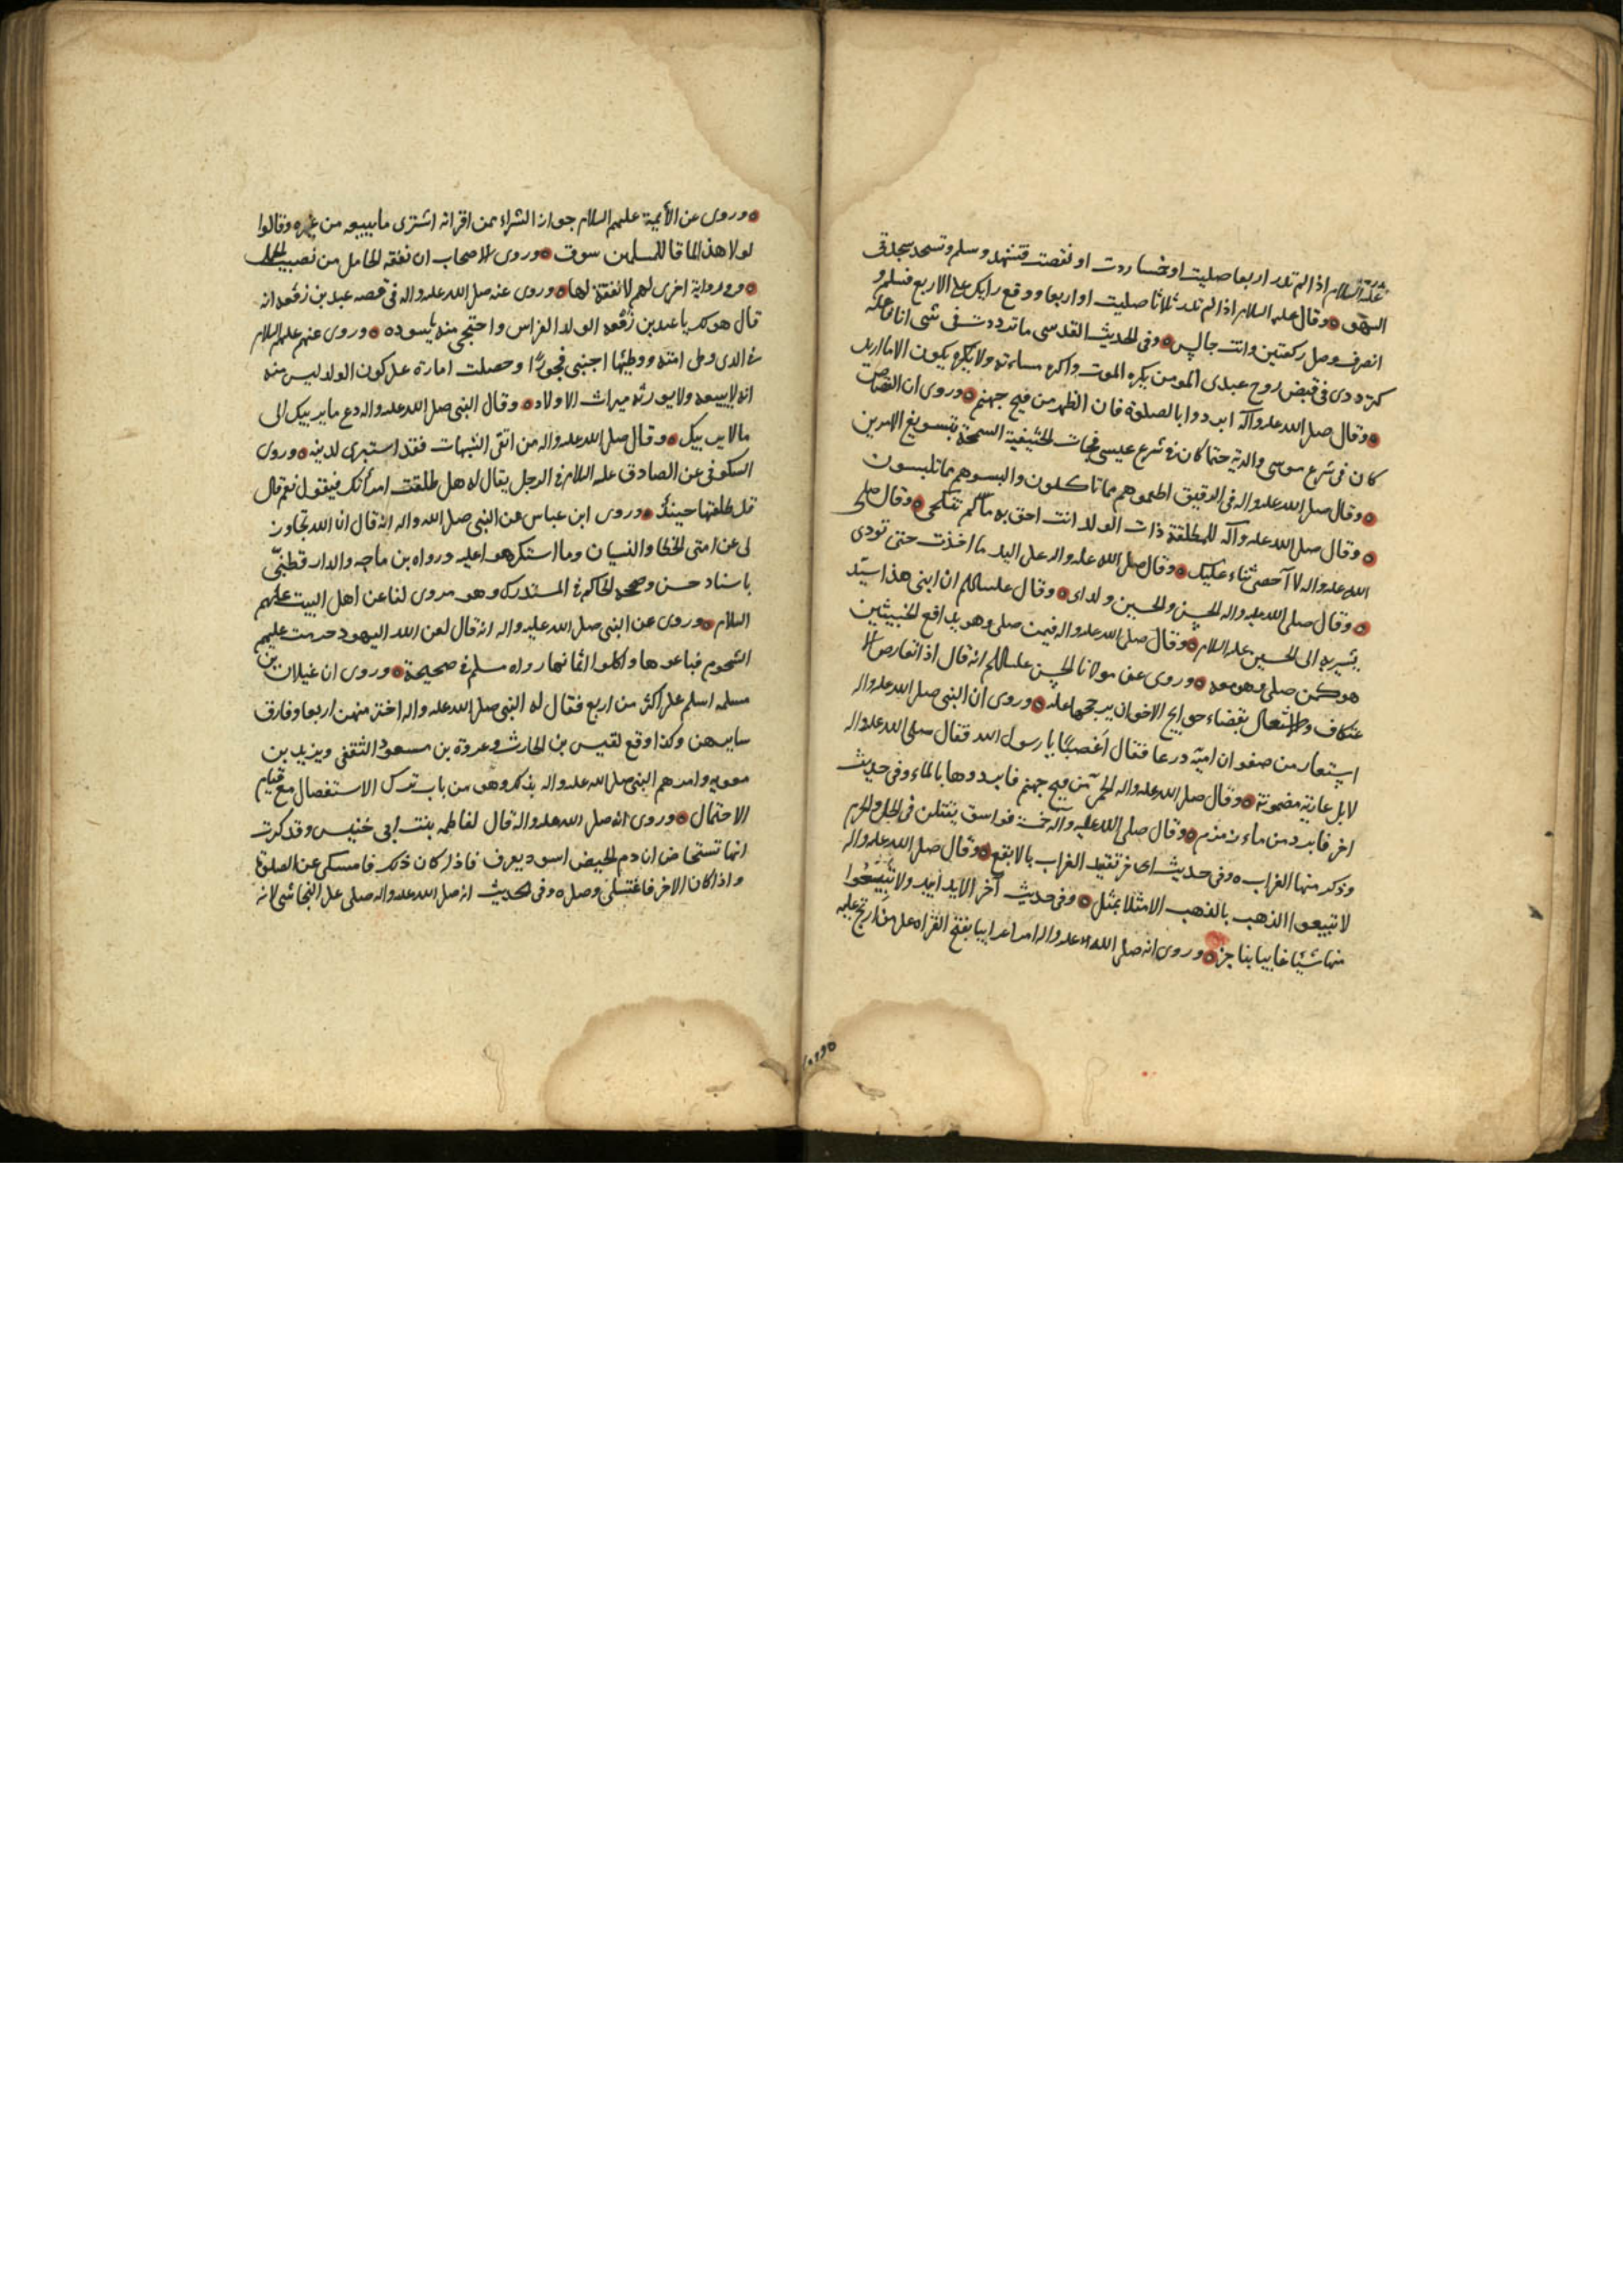 عليه السلام اذا لم تدر اربعا صليت او خمسا زدت او نقصت فتشهد وسلم وتسجد سجدتى
السهو ٥ وقال عليه السلام اذا لم تدر ثلاثا صليت او اربعا ووقع رايك على الاربع فسلم و
انصرف وصل ركعتين وانت جالس ٥ وفى الحديث القدسى ما ترددت فى شى انا فاعله
كترددى فى قبض روح عبدى المومن يكره الموت واكره مساءته ولا يكون الا ما اريد
٥ وقال صلى الله عليه وآله ابردوا بالصلوة فان الظهر من فيح جهنم ٥ وروى ان القصاص
كان فى شرع موسى والدية حتما كان فى شرع عيسى فجات الحنيفية السمحة بتسويغ الامرين
٥ وقال صلى الله عليه واله فى الرقيق اطعموهم مما تاكلون والبسوهم مما تلبسون
٥ وقال صلى الله عليه وآله للمطلقة ذات الولد انت احق به ما لم تنكحى ٥ وقال صلى
الله عليه واله لا آحصى ثناء عليك ٥ وقال صلى الله عليه واله على اليد ما اخذت حتى تودى
٥ وقال صلى الله عليه واله الحسن والحسين ولداى ٥ وقال عليه السلام ان ابنى هذا سيد
يشير به الى الحسين عليه السلام ٥ وقال صلى الله عليه واله فيمن صلى وهو يدافع الخبيثين
هو كمن صلى وهو معه ٥ وروى عن مولانا الحسن عليه السلام انه قال اذا تعارض الا
عتكاف والاشتغال بقضاء حوايج الاخوان يرجحها عليه ٥ وروى ان النبى صلى الله عليه واله
استعار من صفوان امية درعا فقال اغصبًا يا رسول الله فقال صلى الله عليه واله
لا بل عارية مضمونة ٥ وقال صلى الله عليه واله الحمى من فيح جهنم فابردوها بالماء وفى حديث
اخر فابرد من ماء زمزم ٥ وقال صلى الله عليه واله خمسة فواسق يقتلن فى الحل والحرم
وذكر منها الغراب ٥ وفى حديث اخر تقييد الغراب بالابقع ٥ وقال صلى الله عليه واله
لا تبيعوا الذهب بالذهب الا مثلا بمثل ٥ وفى حديث آخر الا يدا بيد ولا تبيعوا
منها شيا غايبا بناجز ٥ وروى انه صلى الله عليه واله امر اعرابيا بفتح القراه على من ارتج عليه
٥ وروى عن الأيمة عليهم السلام جواز الشراء ممن اقر انه اشترى ما يبيعه من غيره وقالوا
لولا هذا لما قام للمسلمين سوق ٥ وروى الاصحاب ان نفقة الحامل من نصيب الحمل
٥ وفى رواية اخرى لهم لا نفقة لها ٥ وروى عنه صلى الله عليه واله فى قصه عبد بن زمعه انه
قال هو لك يا عبد بن زمعه الولد للفراش واحتجبى منه يا سوده ٥ وروى عنهم عليهم السلام
فى الذى وطى امته ووطيها اجنبى فجورًا وحصلت امارة على كون الولد ليس منه
انه لا يبيعه ولا يورثه ميراث الاولاد ٥ وقال النبى صلى الله عليه واله دع ما يريبك الى
ما لا يريبك ٥ وقال صلى الله عليه واله من اتقى الشبهات فقد استبرى لدينه ٥ وروى
السكونى عن الصادق عليه السلام فى الرجل يقال له هل طلقت امرأتك فيقول نعم قال
قد طلقها حينئذ ٥ وروى ابن عباس عن النبى صلى الله واله انه قال ان الله تجاوز
لى عن امتى الخطا والنسيان وما استكرهوا عليه ورواه بن ماجه والدارقطنىّ
باسناد حسن وصححه الحاكم فى المستدرك وهو مروى لنا عن اهل البيت عليهم
السلام ٥ وروى عن النبى صلى الله عليه واله انه قال لعن الله اليهود حرمت عليهم
الشحوم فباعوها واكلوا اثمانها رواه مسلم فى صحيحه ٥ وروى ان غيلان بن
سلمه اسلم على اكثر من اربع فقال له النبى صلى الله عليه واله اختر منهن اربعا وفارق
سايرهن وكذا وقع لقيس بن الحارث وعروة بن مسعود الثقفى ويزيد بن
معويه وامرهم النبى صلى الله عليه واله بذلك وهو من باب ترك الاستفصال مع قيام
الاحتمال ٥ وروى انه صلى الله عليه واله قال لفاطمه بنت ابى حنيس وقد ذكرت
انها تستحاض ان دم الحيض اسود يعرف فاذا كان ذلك فامسكى عن الصلوة
واذا كان الاخر فاغتسلى وصلى ٥ وفى الحديث انه صلى الله عليه واله صلى على النجاشى لانه